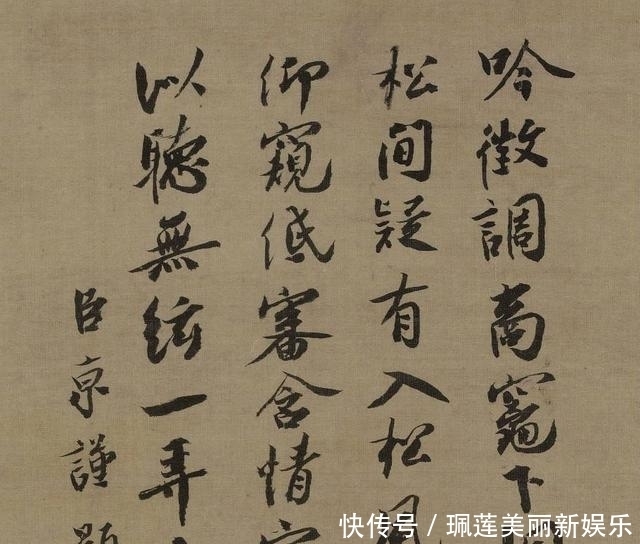 吟徵調商竈下
松間疑有入松風
仰窺低審含情客
以聽無絃一弄
臣京謹題
快传号/珮莲美丽新娱乐